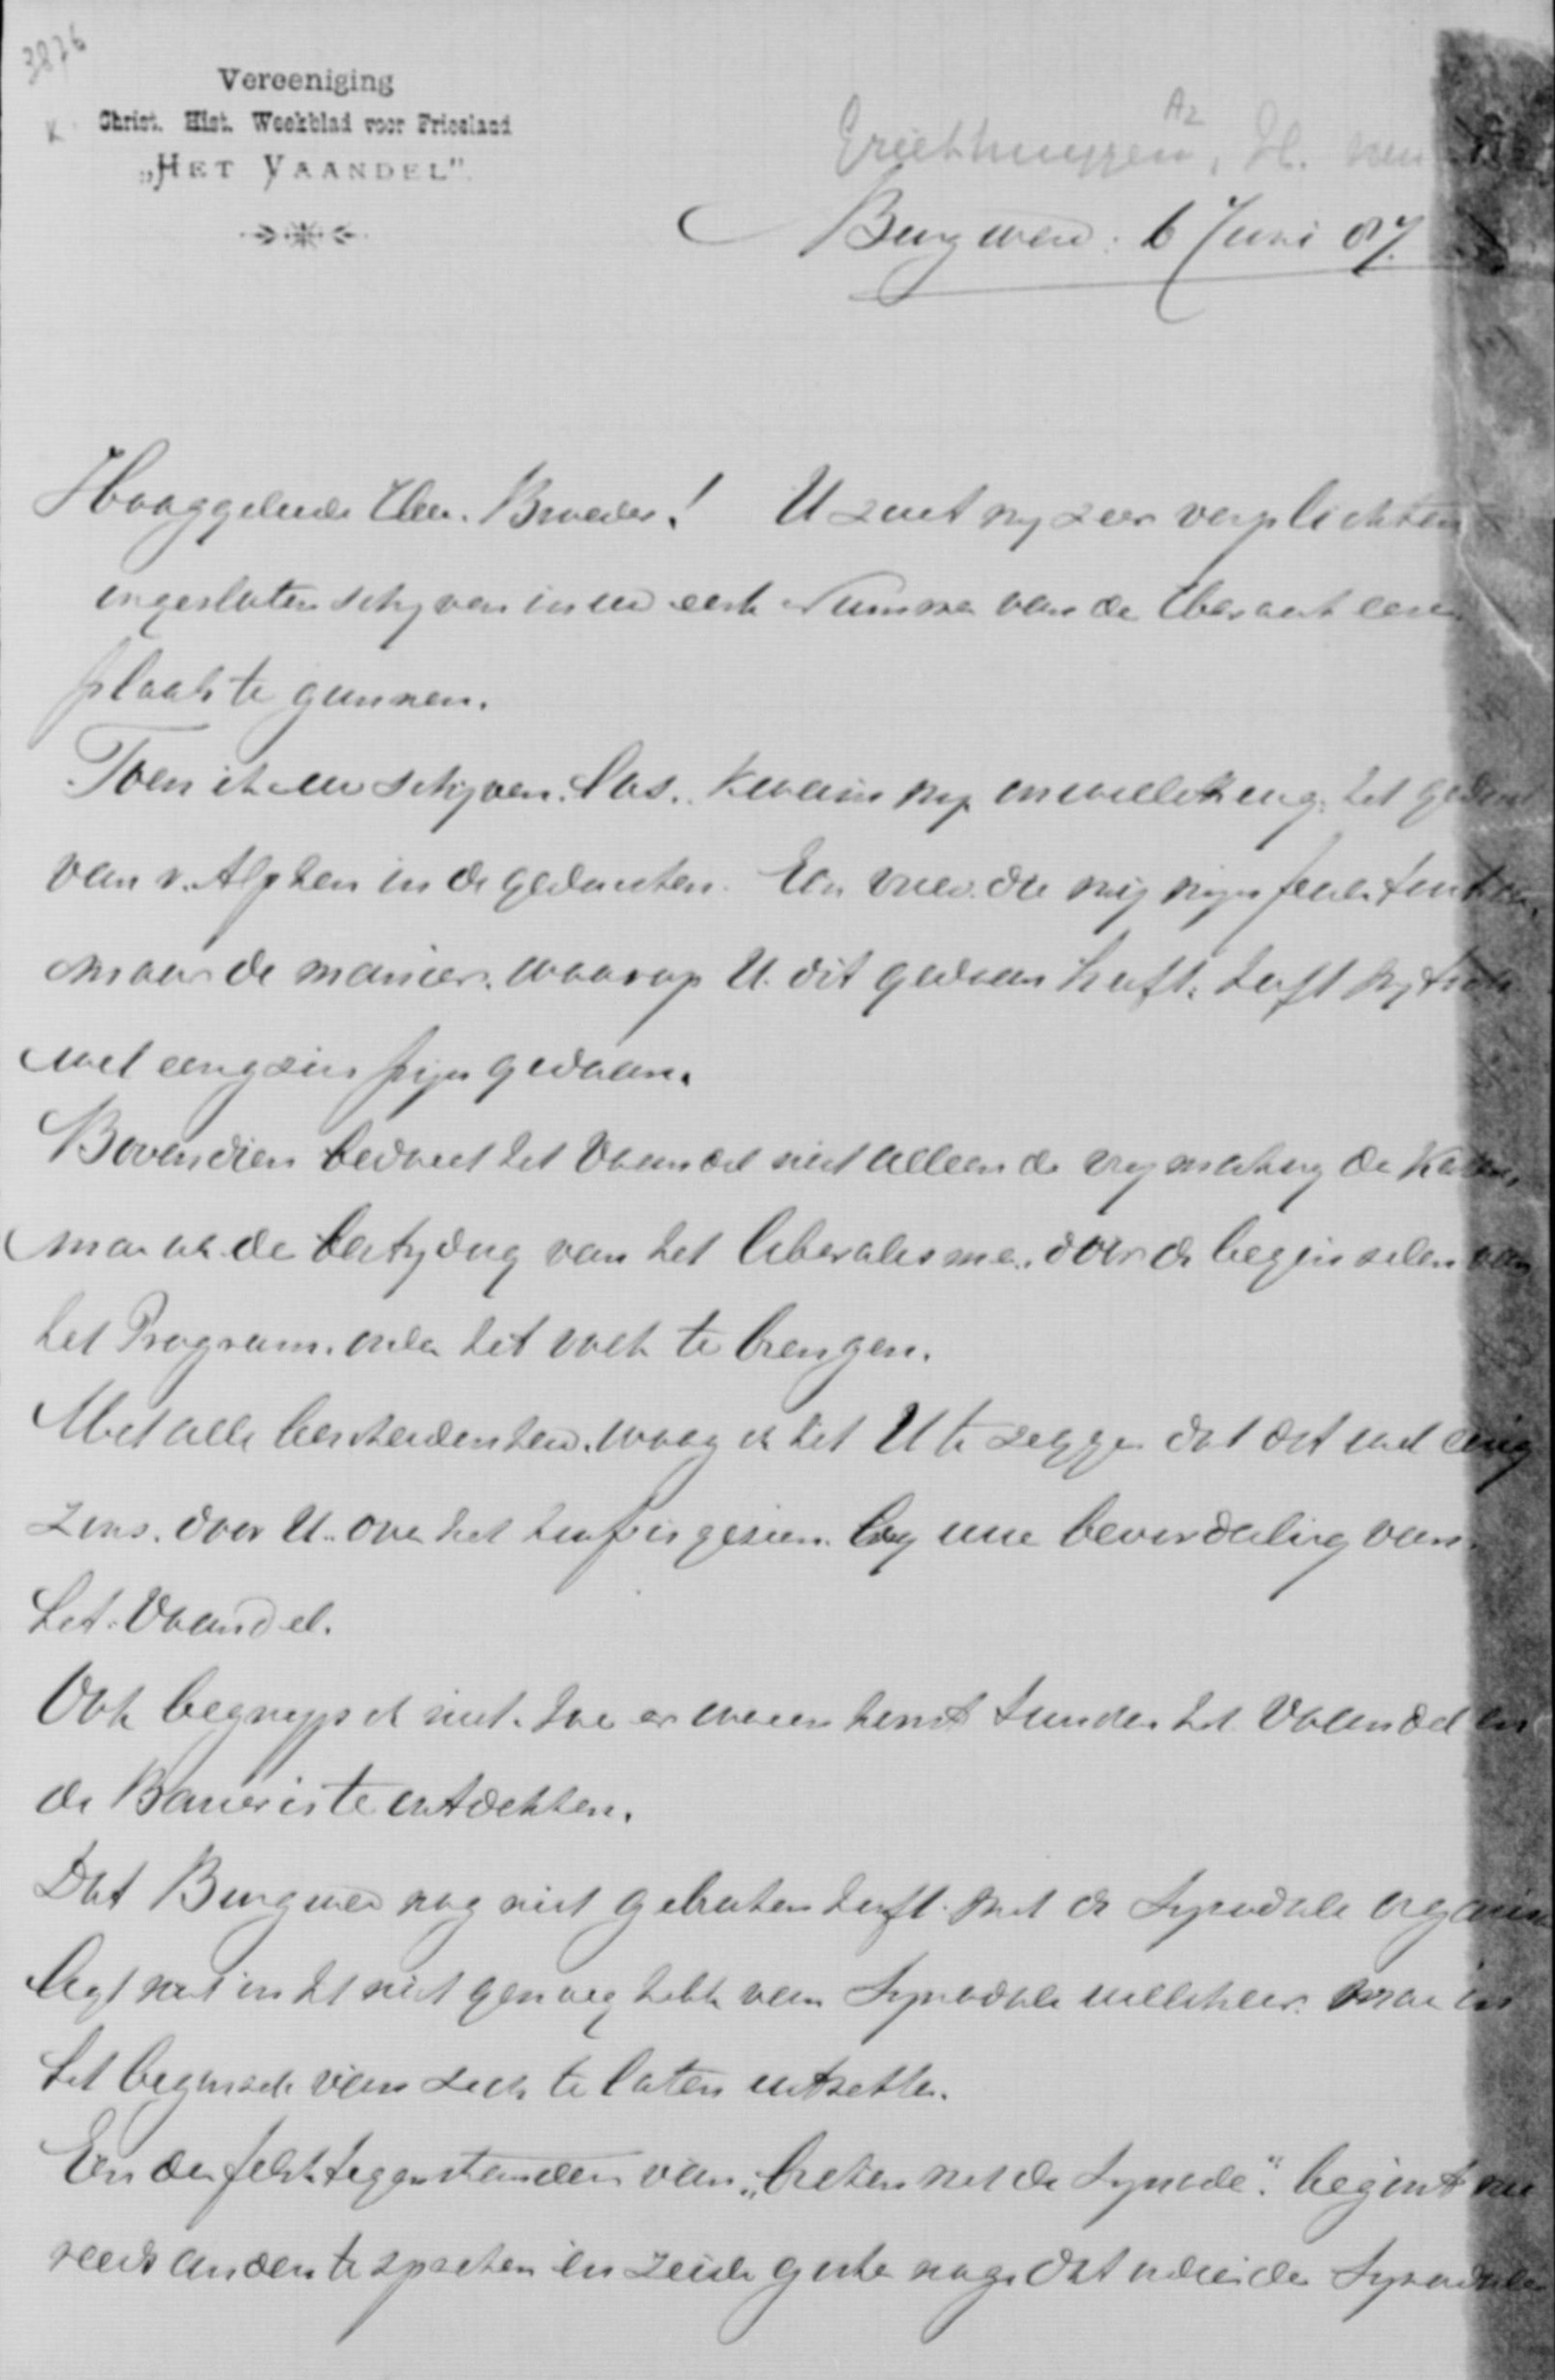 3876
Vereeniging
Christ. Hist. Weekblad voor Friesland
„HET VAANDEL"
K
Az
H. van
Burgwerd. 6 Juni 87.
Hooggeleerde Heer. Broeder! U zoudt mij zeer verplichten
ingesloten schrijven in uw eerste Nummer van de Heraut eene
plaats te gunnen.
Toen ik uw schrijven las, kwam mij onwillekeurig het gedicht
van v. Alphen in de gedachten. Een vriend die mij mijn feilen toont
maar de manier waarop U dit gedaan heeft, heeft mij toch
wel eenigzins pijn gedaan.
Bovendien bedoelt het Vaandel niet alleen de vrijmaking der Kerken,
maar ook de bestrijding van het liberalisme, door de beginselen van
het Program onder het volk te brengen.
Met alle bescheidenheid waag ik het U te zeggen dat dit wel eenig
zins door U over het hoofd is gezien bij uwe beoordeeling van
het Vaandel.
Ook begrijp ik niet hoe er tusschen het Vaandel en
de Banier is te ontdekken.
Dat Burgwerd nog niet gebroken heeft met de Synodale organisatie
ligt niet in het niet genoeg hebben van Synodale willekeur maar in
het beginsel van zich te laten uitzetten.
Een der felste tegenstanders van „breken met de Synode" begint nu
reeds anders te spreken en zeide gister nog dat indien de Synodale